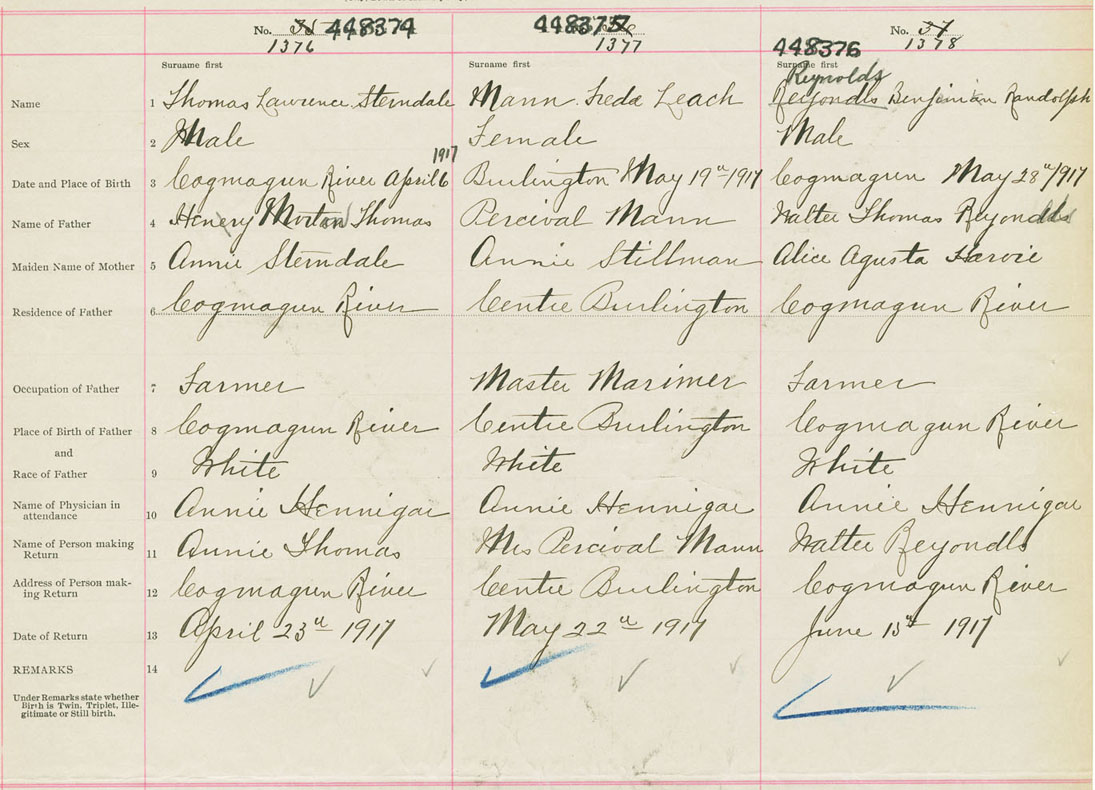 No. 35 448374
1376
No. 36 448375
1377
No. 37
1378
448376
Surname first
Surname first
Surname first
Reynolds
Name 1 Thomas Lawrence Sterndale Mann Freda Leach Reyondls Benjiman Randolph
Sex 2 Male Female Male
1917
Date and Place of Birth 3 Cogmagun River April 6 Burlington May 19th/1917 Cogmagun May 28th/1917
Name of Father 4 Henery Morton Thomas Percival Mann Walter Thomas Reyondls
Maiden Name of Mother 5 Annie Sterndale Annie Stillman Alice Agusta Harvie
Residence of Father 6 Cogmagun River Centre Burlington Cogmagun River
Occupation of Father 7 Farmer Master Marimer Farmer
Place of Birth of Father 8 Cogmagun River Centre Burlington Cogmagun River
and
Race of Father 9 White White White
Name of Physician in
attendance 10 Annie Hennigar Annie Hennigar Annie Hennigar
Name of Person making
Return 11 Annie Thomas Mrs Percival Mann Walter Reyondls
Address of Person mak-
ing Return 12 Cogmagun River Centre Burlington Cogmagun River
Date of Return 13 April 23rd 1917 May 22nd 1917 June 15th 1917
REMARKS 14
Under Remarks state whether
Birth is Twin, Triplet, Ille-
gitimate or Still birth.